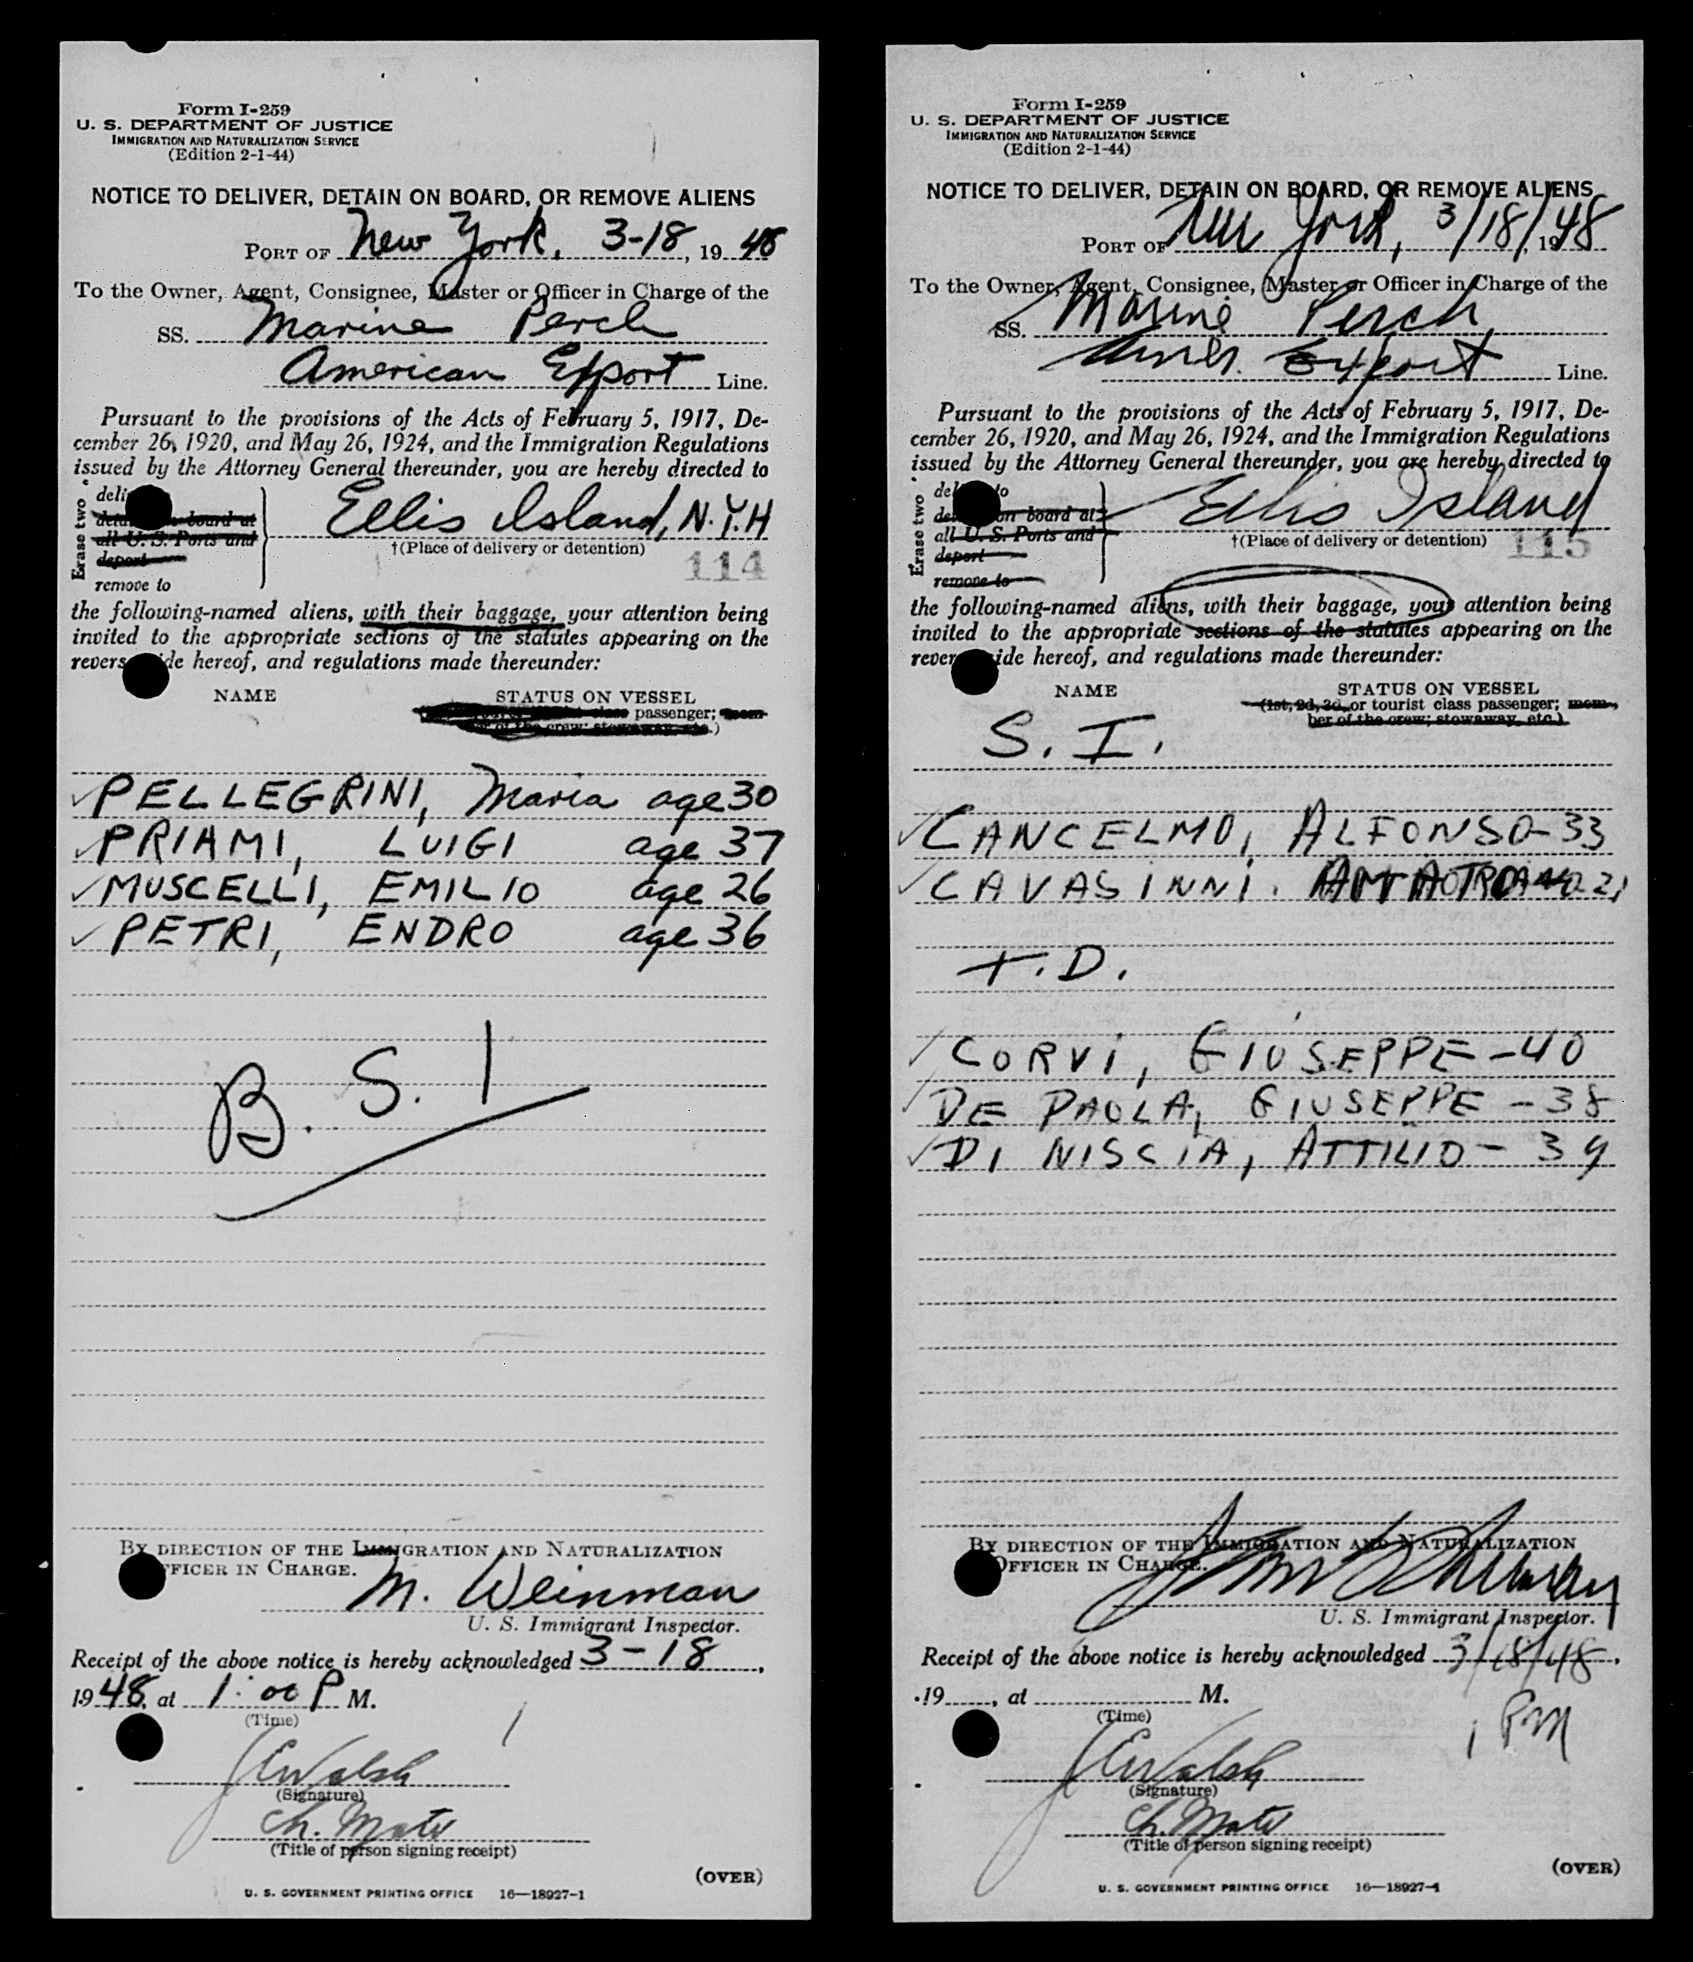 Form I-259
U. S. DEPARTMENT OF JUSTICE
IMMIGRATION AND NATURALIZATION SERVICE
(Edition 2-1-44)
NOTICE TO DELIVER, DETAIN ON BOARD, OR REMOVE ALIENS
PORT OF New York, 3-18, 19 48
To the Owner, Agent, Consignee, Master or Officer in Charge of the
SS. Marine Perch
American Export Line.
Pursuant to the provisions of the Acts of February 5, 1917, De-
cember 26, 1920, and May 26, 1924, and the Immigration Regulations
issued by the Attorney General thereunder, you are hereby directed to
Erase two
deli
board at
all U. S. Ports and
deport
remove to
Ellis Island, N.Y.H
†(Place of delivery or detention)
114
the following-named aliens, with their baggage, your attention being
invited to the appropriate sections of the statutes appearing on the
revers ide hereof, and regulations made thereunder:
NAME STATUS ON VESSEL
class passenger; mem-
ber of the crew; stowaway, etc.)
✓ PELLEGRINI, Maria age 30
✓ PRIAMI, LUIGI age 37
✓ MUSCELLI, EMILIO age 26
✓ PETRI, ENDRO age 36
B. S. I
BY DIRECTION OF THE IMMIGRATION AND NATURALIZATION
FFICER IN CHARGE.
M. Weinman
U. S. Immigrant Inspector.
Receipt of the above notice is hereby acknowledged 3-18,
1948, at 1:00 P M.
(Time)
J E Walsh
(Signature)
Ch. Mate
(Title of person signing receipt)
(OVER)
U. S. GOVERNMENT PRINTING OFFICE 16—18927-1
Form I-259
U. S. DEPARTMENT OF JUSTICE
IMMIGRATION AND NATURALIZATION SERVICE
(Edition 2-1-44)
NOTICE TO DELIVER, DETAIN ON BOARD, OR REMOVE ALIENS
PORT OF New York, 3/18/, 19 48
To the Owner, Agent, Consignee, Master or Officer in Charge of the
SS. Marine Perch
Amer. Export Line.
Pursuant to the provisions of the Acts of February 5, 1917, De-
cember 26, 1920, and May 26, 1924, and the Immigration Regulations
issued by the Attorney General thereunder, you are hereby directed to
Erase two
del to
on board at
all U. S. Ports and
deport
remove to
Ellis Island
†(Place of delivery or detention)
115
the following-named aliens, with their baggage, your attention being
invited to the appropriate sections of the statutes appearing on the
rever ide hereof, and regulations made thereunder:
NAME STATUS ON VESSEL
(1st, 2d, 3d, or tourist class passenger; mem-
ber of the crew; stowaway, etc.)
S. I.
✓ CANCELMO, ALFONSO-33
✓ CAVASINNI. 21
T. D.
✓ CORVI, GIUSEPPE-40
✓ DE PAOLA, GIUSEPPE-38
✓ DI NISCIA, ATTILIO-39
BY DIRECTION OF THE IMMIGRATION AND NATURALIZATION
OFFICER IN CHARGE.
U. S. Immigrant Inspector.
Receipt of the above notice is hereby acknowledged 3/18/48,
19, at M.
(Time)
1 PM
J E Walsh
(Signature)
Ch. Mate
(Title of person signing receipt)
(OVER)
U. S. GOVERNMENT PRINTING OFFICE 16—18927-1